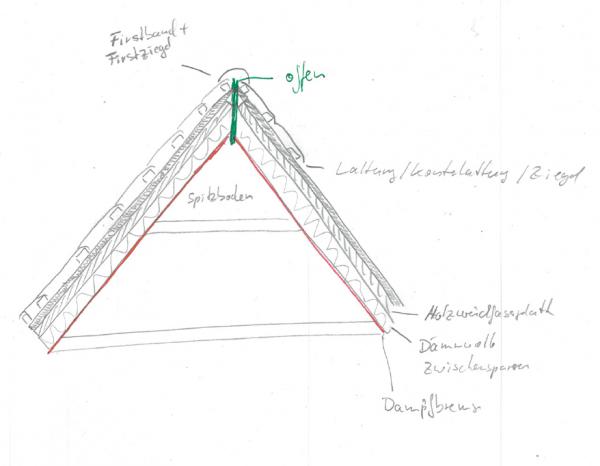 Firstband +
Firstziegel
offen
Lattung/Konterlattung/Ziegel
Spitzboden
Holzweichfaserplatte
Dämmwolle
Zwischensparren
Dampfbremse